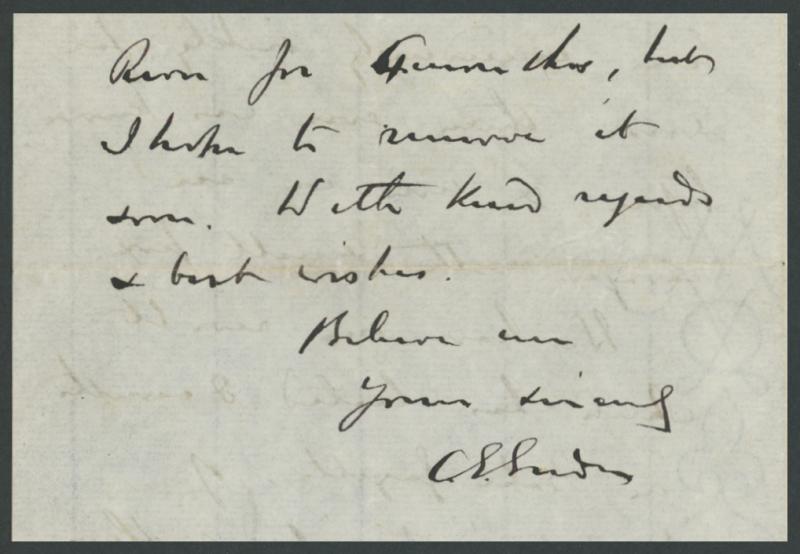 for 4 months, but
I hope to remove it
soon. With kind regards
& best wishes.
Believe me
Yours sincerely
C.E.